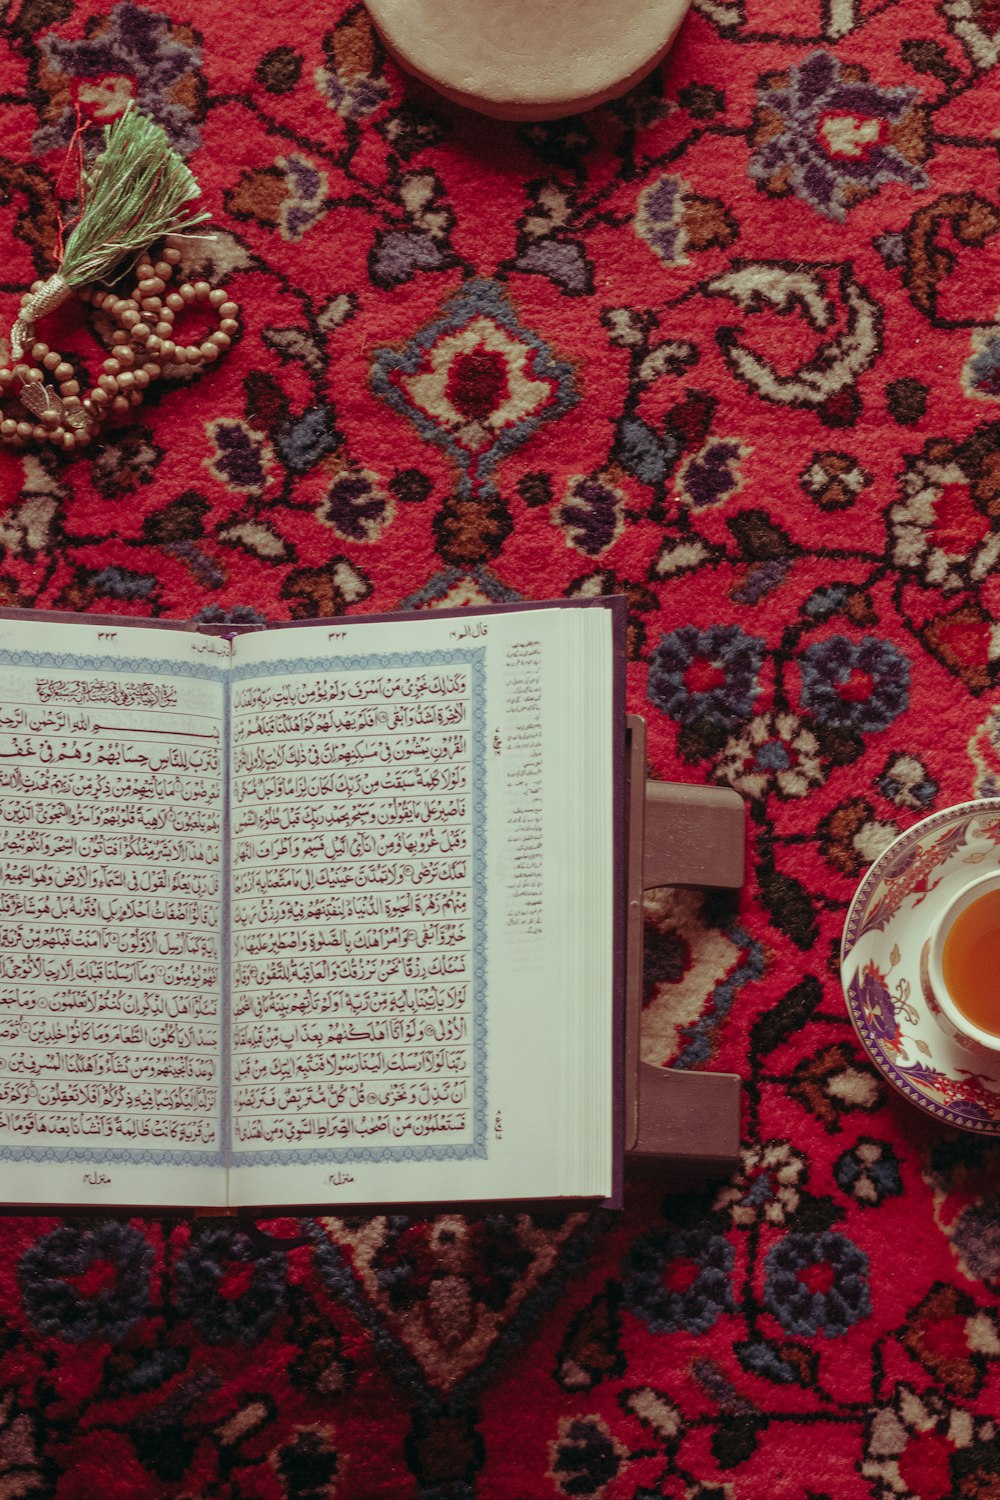 قال الم ١٦
٣٢٢
وَكَذٰلِكَ نَجْزِيْ مَنْ اَسْرَفَ وَلَمْ يُؤْمِنْۢ بِاٰيٰتِ رَبِّهٖ ۗ وَلَعَذَابُ
الْاٰخِرَةِ اَشَدُّ وَاَبْقٰى ۝ اَفَلَمْ يَهْدِ لَهُمْ كَمْ اَهْلَكْنَا قَبْلَهُمْ مِّنَ
الْقُرُوْنِ يَمْشُوْنَ فِيْ مَسٰكِنِهِمْ اِنَّ فِيْ ذٰلِكَ لَاٰيٰتٍ لِّاُولِي النُّهٰى
وَلَوْلَا كَلِمَةٌ سَبَقَتْ مِنْ رَّبِّكَ لَكَانَ لِزَامًا وَّاَجَلٌ مُّسَمًّى
فَاصْبِرْ عَلٰى مَا يَقُوْلُوْنَ وَسَبِّحْ بِحَمْدِ رَبِّكَ قَبْلَ طُلُوْعِ الشَّمْسِ
وَقَبْلَ غُرُوْبِهَا ۚ وَمِنْ اٰنَآئِ الَّيْلِ فَسَبِّحْ وَاَطْرَافَ النَّهَارِ
لَعَلَّكَ تَرْضٰى ۝ وَلَا تَمُدَّنَّ عَيْنَيْكَ اِلٰى مَا مَتَّعْنَا بِهٖ اَزْوَاجًا
مِّنْهُمْ زَهْرَةَ الْحَيٰوةِ الدُّنْيَا لِنَفْتِنَهُمْ فِيْهِ ۗ وَرِزْقُ رَبِّكَ
خَيْرٌ وَّاَبْقٰى ۝ وَاْمُرْ اَهْلَكَ بِالصَّلٰوةِ وَاصْطَبِرْ عَلَيْهَا ۗ لَا
نَسْـَٔلُكَ رِزْقًا ۗ نَحْنُ نَرْزُقُكَ ۗ وَالْعَاقِبَةُ لِلتَّقْوٰى ۝ وَقَالُوْا
لَوْلَا يَاْتِيْنَا بِاٰيَةٍ مِّنْ رَّبِّهٖ ۗ اَوَلَمْ تَاْتِهِمْ بَيِّنَةُ مَا فِي الصُّحُفِ
الْاُوْلٰى ۝ وَلَوْ اَنَّآ اَهْلَكْنٰهُمْ بِعَذَابٍ مِّنْ قَبْلِهٖ لَقَالُوْا
رَبَّنَا لَوْلَآ اَرْسَلْتَ اِلَيْنَا رَسُوْلًا فَنَتَّبِعَ اٰيٰتِكَ مِنْ قَبْلِ
اَنْ نَّذِلَّ وَنَخْزٰى ۝ قُلْ كُلٌّ مُّتَرَبِّصٌ فَتَرَبَّصُوْا
فَسَتَعْلَمُوْنَ مَنْ اَصْحٰبُ الصِّرَاطِ السَّوِيِّ وَمَنِ اهْتَدٰى
منزل ٤
٣٢٣
اللهِ الرَّحْمٰنِ الرَّحِيْمِ
اِقْتَرَبَ لِلنَّاسِ حِسَابُهُمْ وَهُمْ فِيْ غَفْلَةٍ
مُّعْرِضُوْنَ ۝ مَا يَاْتِيْهِمْ مِّنْ ذِكْرٍ مِّنْ رَّبِّهِمْ مُّحْدَثٍ اِلَّا اسْتَمَعُوْهُ
وَهُمْ يَلْعَبُوْنَ ۝ لَاهِيَةً قُلُوْبُهُمْ ۗ وَاَسَرُّوا النَّجْوَى الَّذِيْنَ
هَلْ هٰذَآ اِلَّا بَشَرٌ مِّثْلُكُمْ ۚ اَفَتَاْتُوْنَ السِّحْرَ وَاَنْتُمْ تُبْصِرُوْنَ
قٰلَ رَبِّيْ يَعْلَمُ الْقَوْلَ فِي السَّمَآءِ وَالْاَرْضِ ۖ وَهُوَ السَّمِيْعُ
بَلْ قَالُوْٓا اَضْغَاثُ اَحْلَامٍۢ بَلِ افْتَرٰىهُ بَلْ هُوَ شَاعِرٌ
بِاٰيَةٍ كَمَآ اُرْسِلَ الْاَوَّلُوْنَ ۝ مَآ اٰمَنَتْ قَبْلَهُمْ مِّنْ قَرْيَةٍ
اَفَهُمْ يُؤْمِنُوْنَ ۝ وَمَآ اَرْسَلْنَا قَبْلَكَ اِلَّا رِجَالًا نُّوْحِيْٓ
اَهْلَ الذِّكْرِ اِنْ كُنْتُمْ لَا تَعْلَمُوْنَ ۝ وَمَا جَعَلْنٰهُمْ
جَسَدًا لَّا يَاْكُلُوْنَ الطَّعَامَ وَمَا كَانُوْا خٰلِدِيْنَ
الْوَعْدَ فَاَنْجَيْنٰهُمْ وَمَنْ نَّشَآءُ وَاَهْلَكْنَا الْمُسْرِفِيْنَ
اَنْزَلْنَآ اِلَيْكُمْ كِتٰبًا فِيْهِ ذِكْرُكُمْ ۗ اَفَلَا تَعْقِلُوْنَ ۝ وَكَمْ
مِنْ قَرْيَةٍ كَانَتْ ظَالِمَةً وَّاَنْشَاْنَا بَعْدَهَا قَوْمًا
منزل ٤